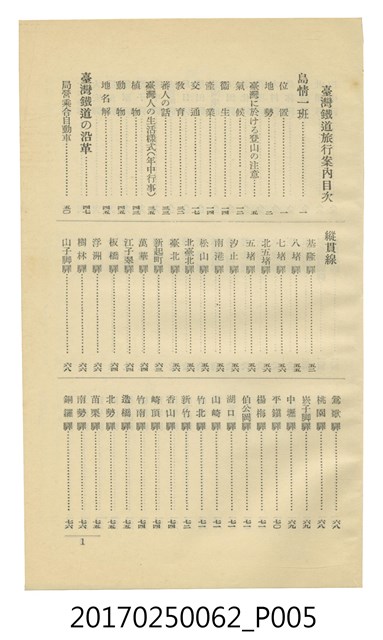 臺灣鐵道旅行案内目次
島情一班……一
位置……一
地勢……二
臺灣に於ける登山の注意
氣候……一二
衞生……一四
產業……一四
交通
教育……三二
蕃人の話
臺灣人の生活樣式(年中行事)……三五
植物
動物
地名解……四五
臺灣鐵道の沿革……四七
局營乘合自動車……五〇
縱貫線
基隆驛……五三
八堵驛……五六
七堵驛……五六
北五堵驛……五六
五堵驛……五六
汐止驛……五六
南港驛……五六
松山驛……五六
北臺北驛……五六
臺北驛
新起町驛
萬華驛
江子翠驛……六四
板橋驛……六四
浮洲驛……六六
樹林驛……六六
山子脚驛……六八
鶯歌驛……六八
桃園驛……六八
崁子脚驛……六九
中壢驛……六九
平鎭驛……七〇
楊梅驛……七一
伯公岡驛……七一
湖口驛……七一
山崎驛……七一
竹北驛……七一
新竹驛……七二
香山驛……七四
崎頂驛……七四
竹南驛……七四
造橋驛……七五
北勢驛……七五
苗栗驛……七五
南勢驛……七六
銅鑼驛……七六
1
20170250062_P005